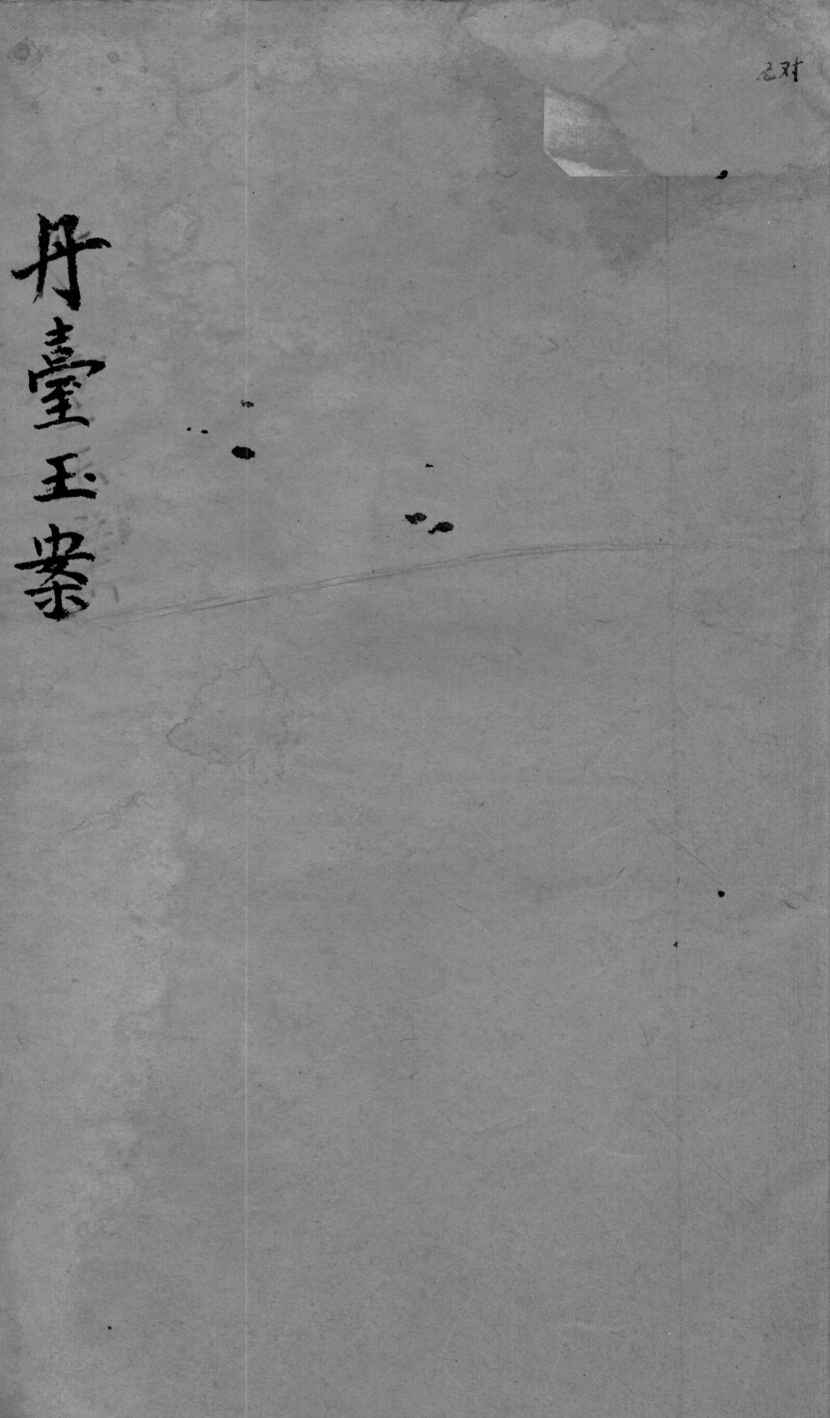 已对
丹臺玉案